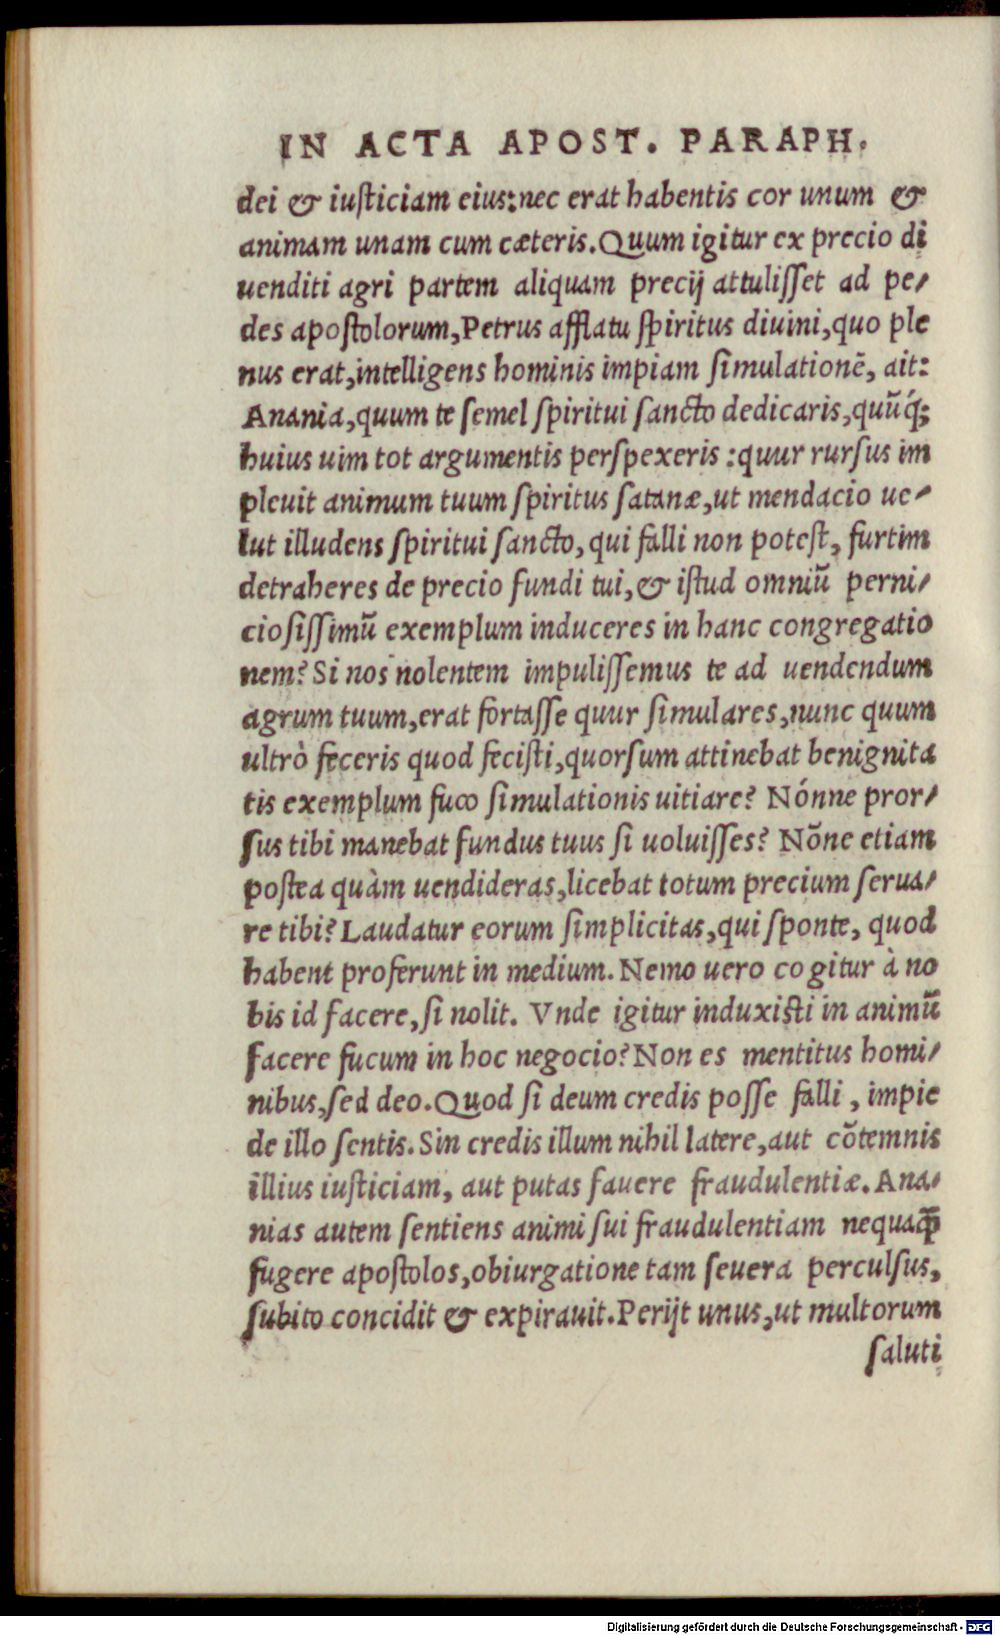 IN ACTA APOST. PARAPH.
dei & iusticiam eius: nec erat habentis cor unum &
animam unam cum cæteris. Quum igitur ex precio di
uenditi agri partem aliquam precij attulisset ad pe/
des apostolorum, Petrus afflatu spiritus diuini, quo ple
nus erat, intelligens hominis impiam simulationē, ait:
Anania, quum te semel spiritui sancto dedicaris, quūq́;
huius uim tot argumentis perspexeris: quur rursus im
pleuit animum tuum spiritus satanæ, ut mendacio ue/
lut illudens spiritui sancto, qui falli non potest, furtim
detraheres de precio fundi tui, & istud omniū perni/
ciosissimū exemplum induceres in hanc congregatio
nem? Si nos nolentem impulissemus te ad uendendum
agrum tuum, erat fortasse quur simulares, nunc quum
ultrò feceris quod fecisti, quorsum attinebat benignita
tis exemplum fuco simulationis uitiare? Nónne pror/
sus tibi manebat fundus tuus si uoluisses? Nōne etiam
postea quàm uendideras, licebat totum precium serua/
re tibi? Laudatur eorum simplicitas, qui sponte, quod
habent proferunt in medium. Nemo uero cogitur à no
bis id facere, si nolit. Vnde igitur induxisti in animū
facere fucum in hoc negocio? Non es mentitus homi/
nibus, sed deo. Quod si deum credis posse falli, impie
de illo sentis. Sin credis illum nihil latere, aut cōtemnis
illius iusticiam, aut putas fauere fraudulentiæ. Ana/
nias autem sentiens animi sui fraudulentiam nequaꝗ̃
fugere apostolos, obiurgatione tam seuera perculsus,
subito concidit & expirauit. Perijt unus, ut multorum
saluti
Digitalisierung gefördert durch die Deutsche Forschungsgemeinschaft - DFG